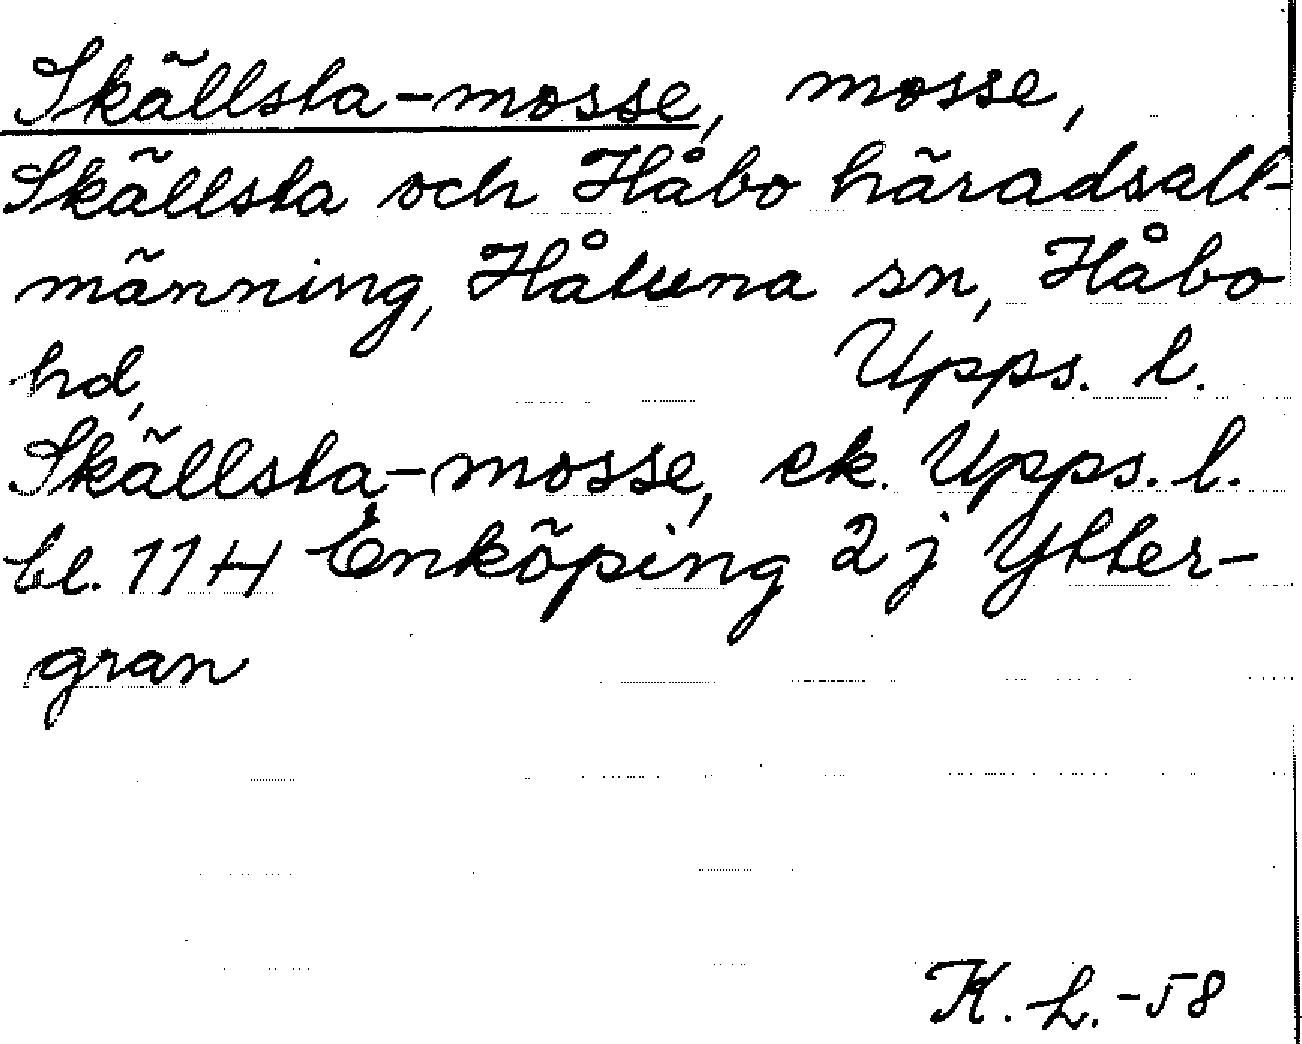 Skällsta-mosse, mosse,
Skällsta och Håbo häradsall-
männing, Håtuna sn, Håbo
hd, Upps. l.
Skällsta-mosse, ek. Upps. l.
bl. 11H Enköping 2j Ytter-
gran
K. L. -58